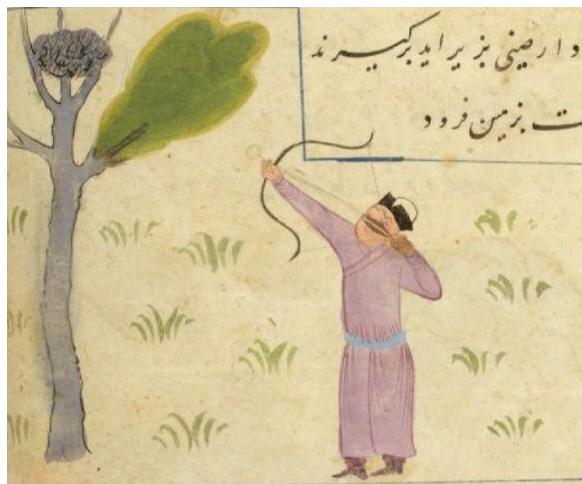 دارصینی بزیر اید برکیرند
ت بزمین فرود